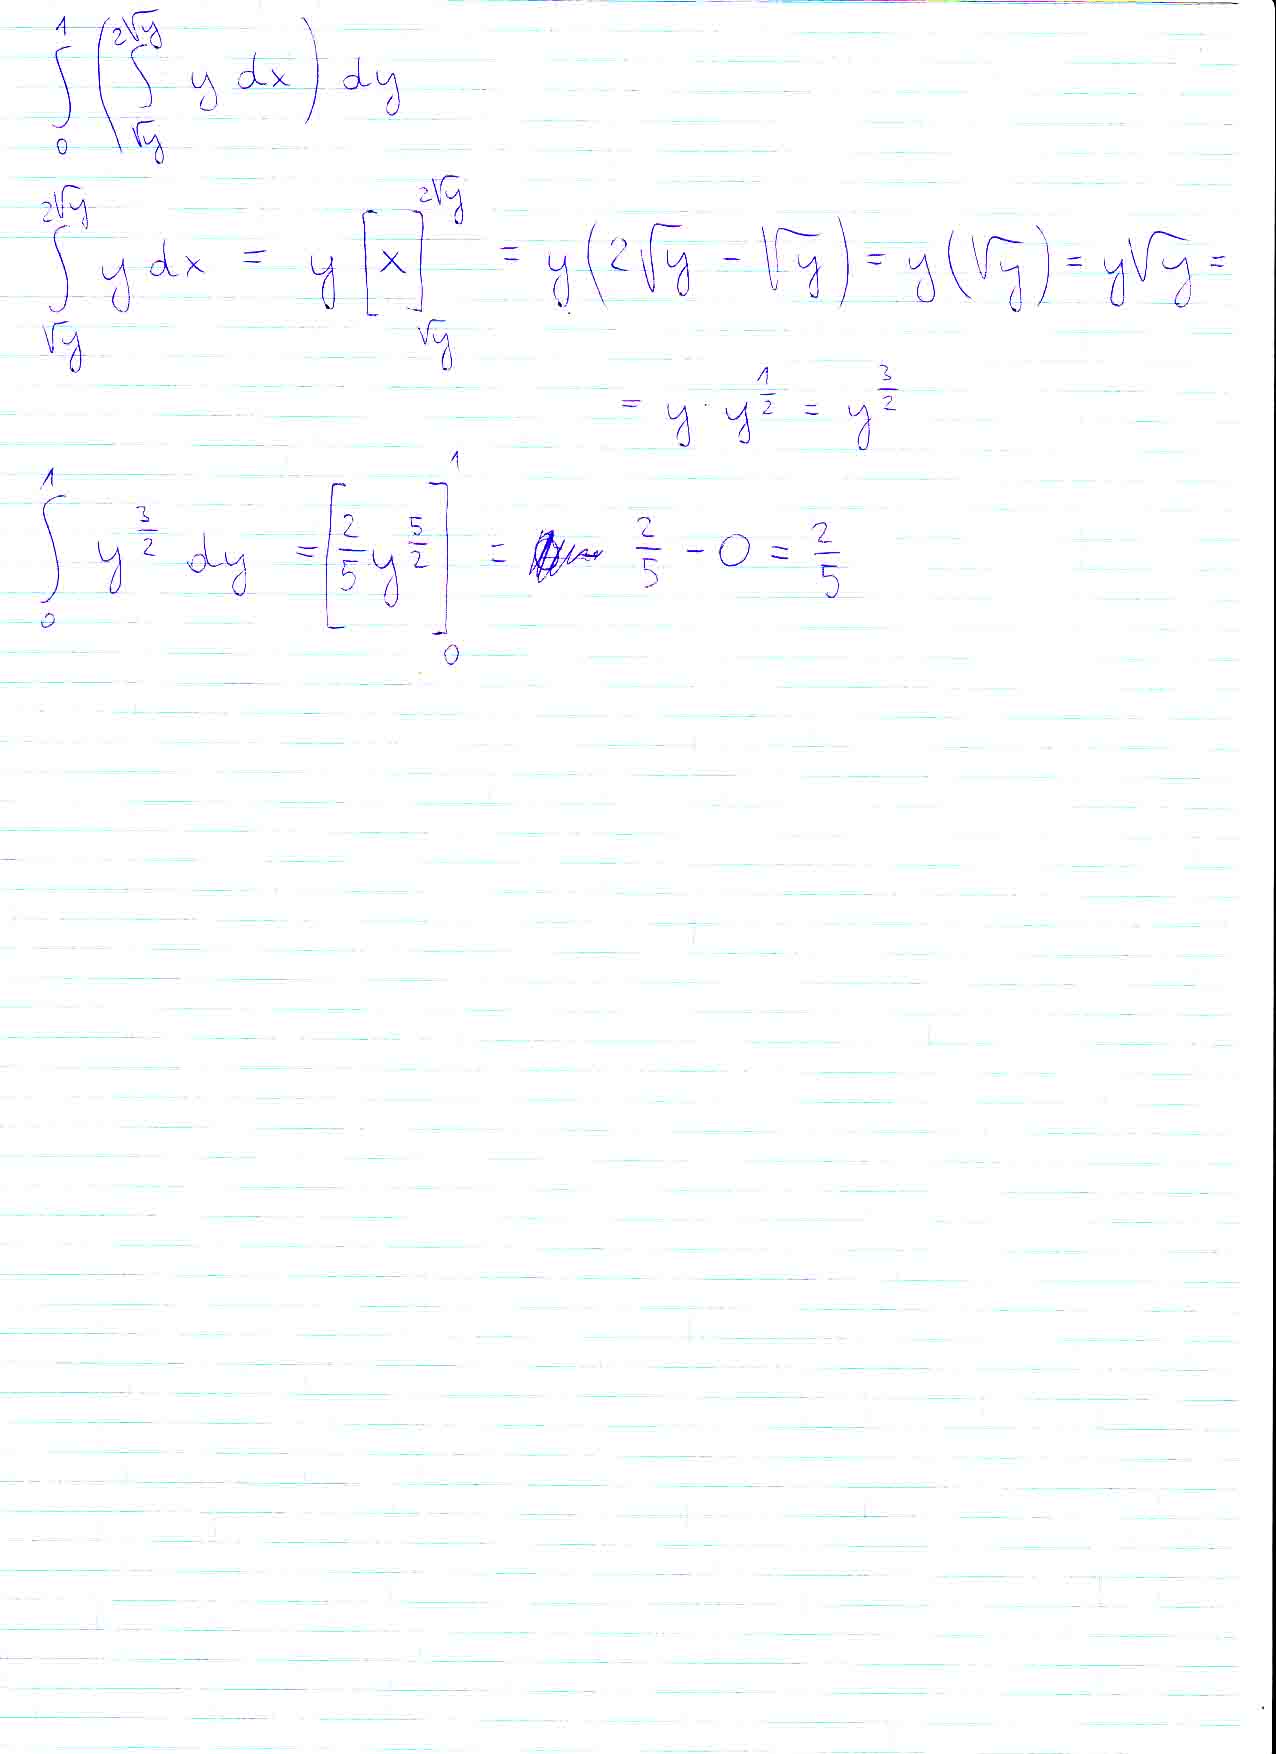 ∫₀¹ (∫_{√y}^{2√y} y dx) dy
∫_{√y}^{2√y} y dx = y [x]_{√y}^{2√y} = y(2√y - √y) = y(√y) = y√y =
= y · y^{1/2} = y^{3/2}
∫₀¹ y^{3/2} dy = [2/5 y^{5/2}]₀¹ = 2/5 - 0 = 2/5